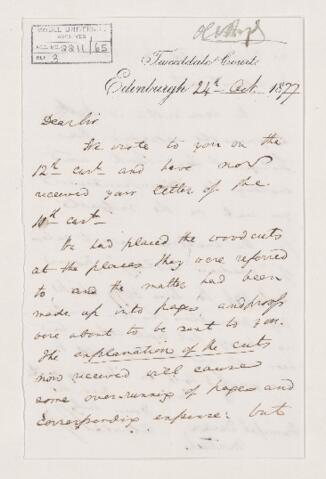 McGILL UNIVERSITY
ARCHIVES
ACC. NO. 2211/65
REF. 2
Tweeddale Court
Edinburgh 24th Oct. 1877
Dear Sir
We wrote to you on the
12th curt and have now
received your letter of the
10th curt
We had placed the woodcuts
at the places they were referred
to, and the matter had been
made up into pages, and proofs
were about to be sent to you.
The explanation of the cuts
now received will cause
some overrunning of pages and
corresponding expense: but